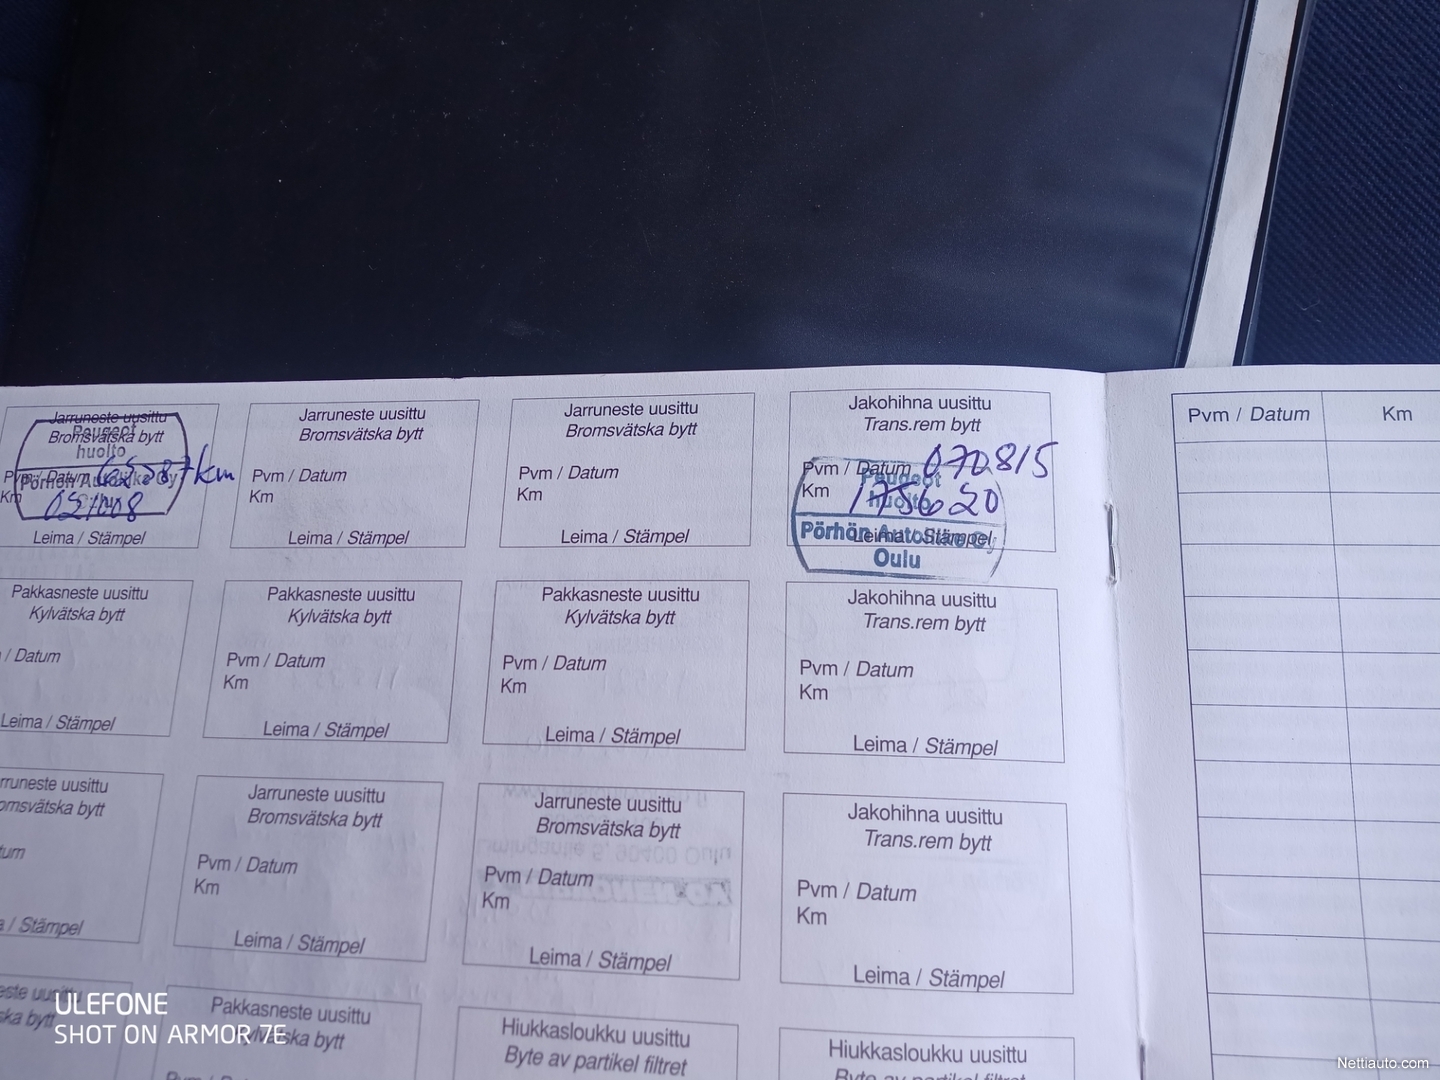 Jarruneste uusittu
Bromsvätska bytt
Peugeot
huolto
Pvm / Datum
Km
Leima / Stämpel
Jarruneste uusittu
Bromsvätska bytt
Pvm / Datum
Km
Leima / Stämpel
Jarruneste uusittu
Bromsvätska bytt
Pvm / Datum
Km
Leima / Stämpel
Jakohihna uusittu
Trans.rem bytt
Pvm / Datum 070815
Km 175620
Peugeot
huolto
Pörhön Autoliike Oy
Oulu
Leima / Stämpel
Pvm / Datum Km
Pakkasneste uusittu
Kylvätska bytt
/ Datum
Leima / Stämpel
Pakkasneste uusittu
Kylvätska bytt
Pvm / Datum
Km
Leima / Stämpel
Pakkasneste uusittu
Kylvätska bytt
Pvm / Datum
Km
Leima / Stämpel
Jakohihna uusittu
Trans.rem bytt
Pvm / Datum
Km
Leima / Stämpel
rruneste uusittu
omsvätska bytt
tum
/ Stämpel
Jarruneste uusittu
Bromsvätska bytt
Pvm / Datum
Km
Leima / Stämpel
Jarruneste uusittu
Bromsvätska bytt
Pvm / Datum
Km
Leima / Stämpel
Jakohihna uusittu
Trans.rem bytt
Pvm / Datum
Km
Leima / Stämpel
Pakkasneste uusittu
Kylvätska bytt
Pvm / Datum
Hiukkasloukku uusittu
Byte av partikel filtret
Hiukkasloukku uusittu
Byte av partikel filtret
ULEFONE
SHOT ON ARMOR 7E
Nettiauto.com